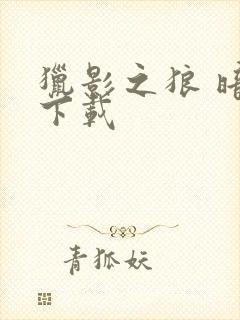 獵影之狼 暗
下載
青狐妖